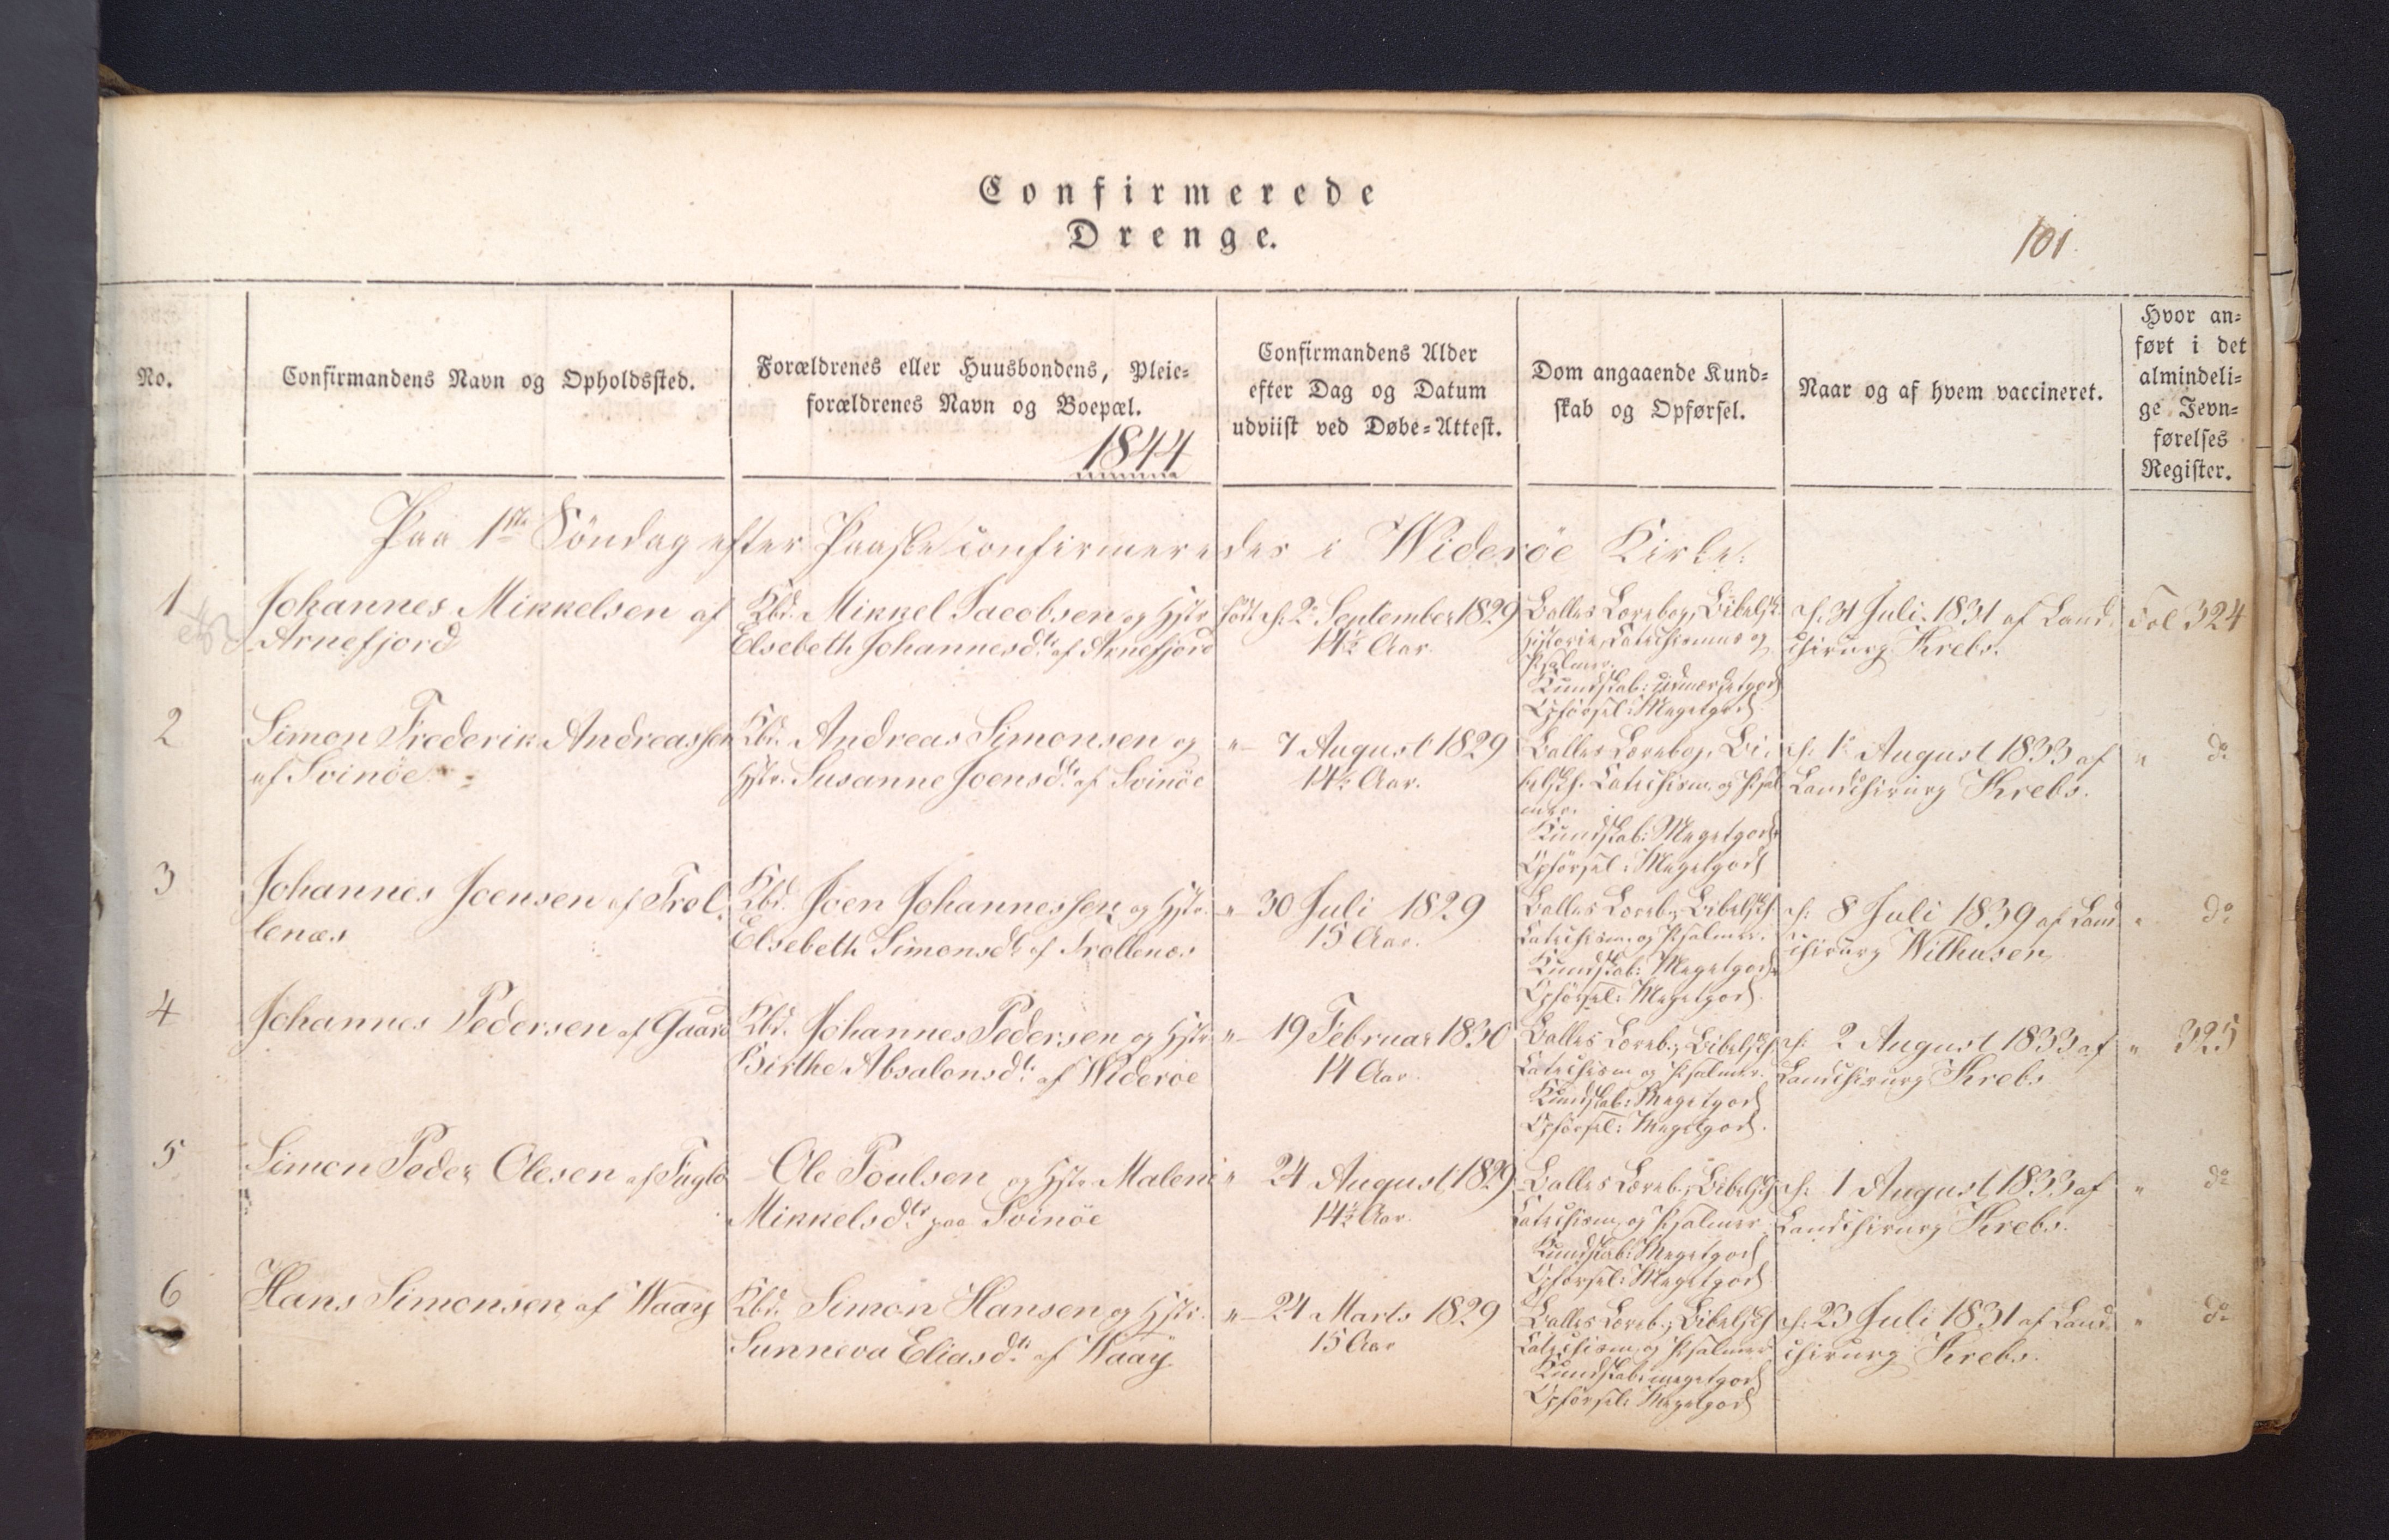 Confirmerede
Drenge.
101.
No.
Confirmandens Navn og Opholdssted.
Forældrenes eller Huusbondens, Pleie-
forældrenes Navn og Boepæl.
Confirmandens Alder
efter Dag og Datum
udviist ved Døbe-Attest.
Dom angaaende Kund-
skab og Opførsel.
Naar og af hvem vaccineret.
Hvor an-
ført i det
almindeli-
ge Jevn-
førelses
Register.
1844
Paa 1ste Söndag efter Paaske confirmeredes i Wideröe Kirke:
1
Johannes Mikkelsen af
Arnefjord
Kbd. Mikkel Jacobsen og Hstr
Elsebeth Johannesdtr af Arnefjord
født d: 2 September 1829
14½ Aar.
Balles Lærebog, Bibelsk
Historie, Catechismus og
Psalmer.
Kundskab: udmærket god
Opförsel: Meget god
d: 31 Juli 1831 af Land-
chirurg Krebs.
Fol 324
2
Simon Frederik Andreassen
af Svinöe
Kbd. Andreas Simonsen og
Hstr. Susanne Joensdtr af Svinöe
" 7 August 1829
14½ Aar.
Balles Lærebog, Bi-
belsk H. Catechism. og Psal-
mer.
Kundskab: Meget god
Opförsel: Meget god
d: 1 August 1833 af
Landchirurg Krebs.
" do
3
Johannes Joensen af Trol-
lenæs
Kbd. Joen Johannessen og Hstr.
Elsebeth Simonsdtr af Trollenæs
" 30 Juli 1829
15 Aar.
Balles Læreb., Bibelsk H.
Catechism. og Psalmer.
Kundskab: Meget god
Opförsel: Meget god.
d: 8 Juli 1839 af Land-
chirurg Withusen
" do
4
Johannes Pedersen af Gaard
Kbd. Johannes Pedersen og Hstr
Birthe Absalonsdtr. af Wideröe
" 19 Februar 1830
14 Aar.
Balles Læreb., Bibelsk H
Catechism og Psalmer.
Kundskab: Meget god
Opförsel: Meget god.
d: 2 August 1833 af
Landchirurg Krebs
" 325
5
Simon Peder Olesen af Fuglö
Ole Poulsen og Hstr Maleni
Mikkelsdtr. paa Svinöe
" 24 August 1829
14½ Aar.
Balles Læreb., Bibelsk H
Catechism. og Psalmer
Kundskab: Meget god
Opförsel: Meget god
d: 1 August 1833 af
Landchirurg Krebs.
" do
6
Hans Simonsen af Waaÿ
Kbd. Simon Hansen og Hstr.
Sunneva Eliasdtr. af Waaÿ.
" 24 Marts 1829
15 Aar
Balles Læreb., Bibelsk H
Catechism. og Psalmer
Kundskab: meget god
Opförsel: Meget god
d: 23 Juli 1831 af Land-
chirurg Krebs.
" do